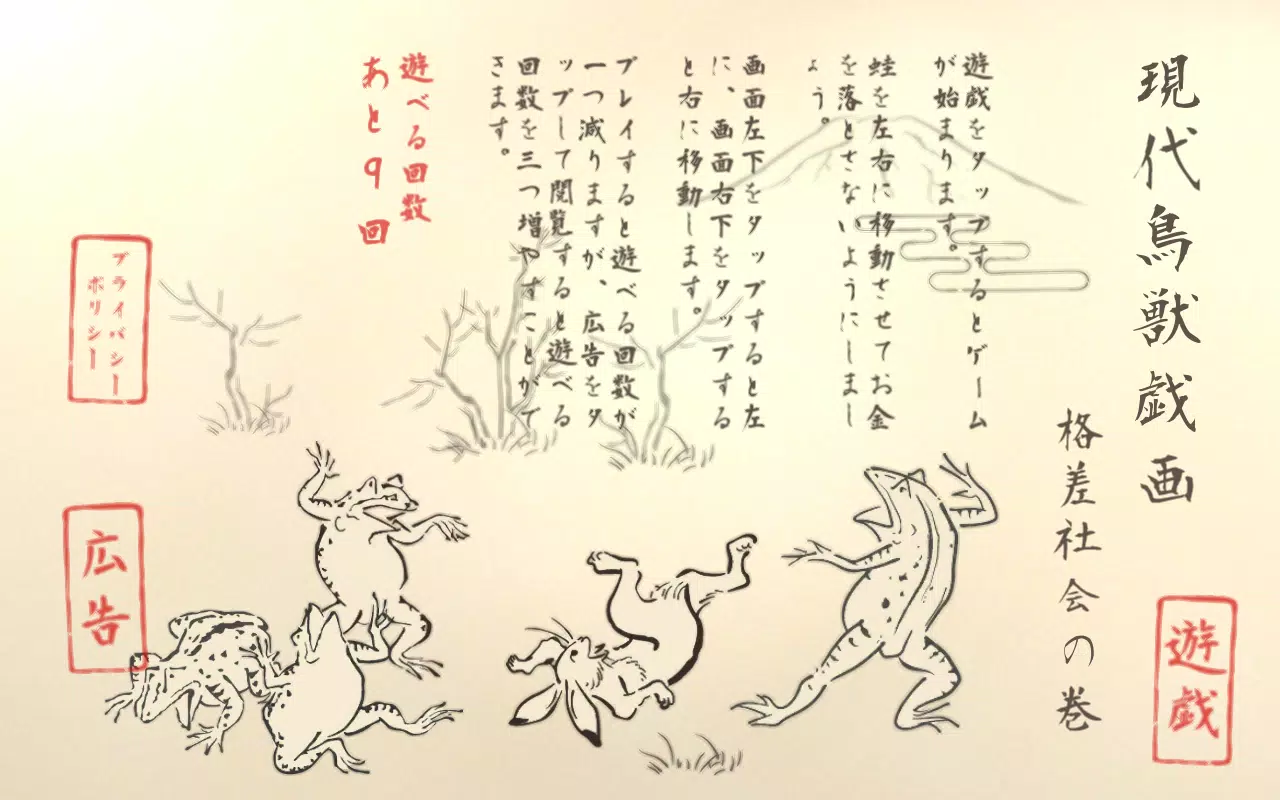 現代鳥獣戯画
格差社会の巻
遊戯をタップするとゲーム
が始まります。
蛙を左右に移動させてお金
を落とさないようにしまし
ょう。
画面左下をタップすると左
に、画面右下をタップする
と右に移動します。
プレイすると遊べる回数が
一つ減りますが、広告をタ
ップして閲覧すると遊べる
回数を三つ増やすことがで
きます。
遊べる回数
あと9回
遊戯
プライバシー
ポリシー
広告